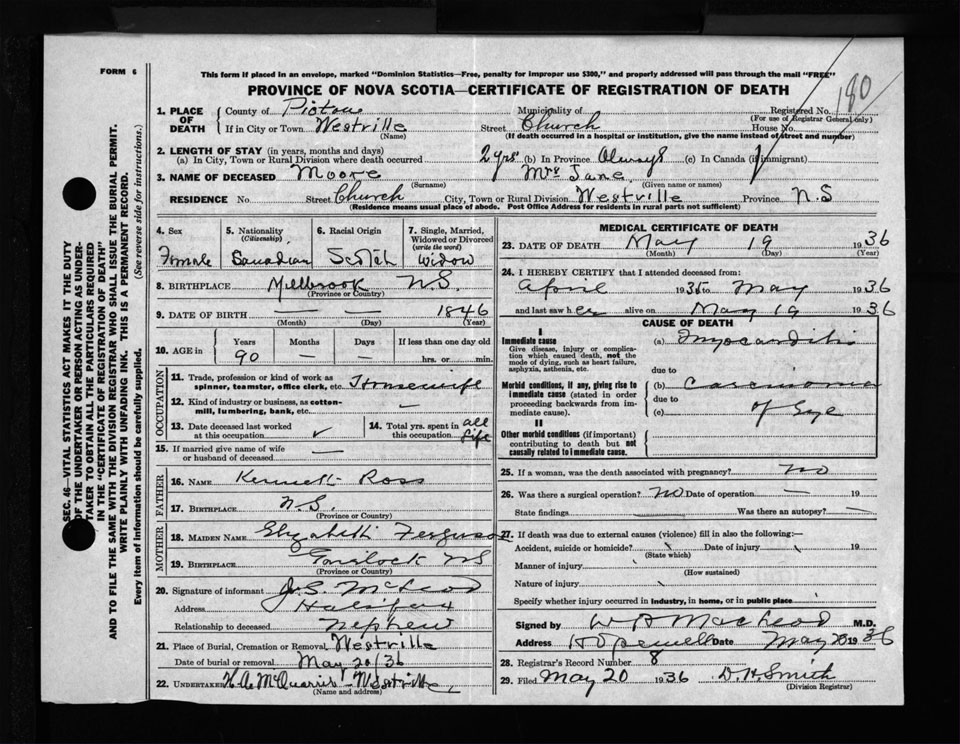 FORM 6
This form if placed in an envelope, marked "Dominion Statistics—Free, penalty for improper use $300," and properly addressed will pass through the mail "FREE"
PROVINCE OF NOVA SCOTIA—CERTIFICATE OF REGISTRATION OF DEATH
180
1. PLACE OF DEATH
County of Pictou Municipality of Registered No.
(For use of Registrar General only)
If in City or Town Westville Street Church House No.
(Name) (If death occurred in a hospital or institution, give the name instead of street and number)
2. LENGTH OF STAY (in years, months and days)
(a) In City, Town or Rural Division where death occurred 2 yrs (b) In Province Always (c) In Canada (if immigrant)
3. NAME OF DECEASED Moore Mrs Jane
(Surname) (Given name or names)
RESIDENCE No. Street Church City, Town or Rural Division Westville Province N.S
(Residence means usual place of abode. Post Office Address for residents in rural parts not sufficient)
4. Sex Female
5. Nationality (Citizenship) Canadian
6. Racial Origin Scotch
7. Single, Married, Widowed or Divorced (write the word) Widow
8. BIRTHPLACE Millbrook N.S.
(Province or Country)
9. DATE OF BIRTH 1846
(Month) (Day) (Year)
10. AGE in Years Months Days If less than one day old
90 — — hrs. or min.
OCCUPATION
11. Trade, profession or kind of work as spinner, teamster, office clerk, etc. Housewife
12. Kind of industry or business, as cotton-mill, lumbering, bank, etc. —
13. Date deceased last worked at this occupation ✓
14. Total yrs. spent in this occupation all life
15. If married give name of wife or husband of deceased —
FATHER
16. NAME Kenneth Ross
17. BIRTHPLACE N.S.
(Province or Country)
MOTHER
18. MAIDEN NAME Elizabeth Ferguson
19. BIRTHPLACE Gairloch N S
(Province or Country)
20. Signature of informant J. S. McLeod
Address Halifax
Relationship to deceased Nephew
21. Place of Burial, Cremation or Removal Westville
Date of burial or removal May 20/36
22. UNDERTAKER McQuarrie Westville
(Name and address)
MEDICAL CERTIFICATE OF DEATH
23. DATE OF DEATH May 19 1936
(Month) (Day) (Year)
24. I HEREBY CERTIFY that I attended deceased from:
April 1935 to May 1936
and last saw her alive on May 19 1936
CAUSE OF DEATH
I
Immediate cause (a) Myocarditis
Give disease, injury or complication which caused death, not the mode of dying, such as heart failure, asphyxia, asthenia, etc.
due to
Morbid conditions, if any, giving rise to immediate cause (stated in order proceeding backwards from immediate cause).
(b) Carcinoma
due to
(c) of Eye
II
Other morbid conditions (if important) contributing to death but not causally related to immediate cause.
25. If a woman, was the death associated with pregnancy? no
26. Was there a surgical operation? no Date of operation — 19
State findings Was there an autopsy? —
27. If death was due to external causes (violence) fill in also the following:—
Accident, suicide or homicide? Date of injury 19
(State which)
Manner of injury
(How sustained)
Nature of injury
Specify whether injury occurred in industry, in home, or in public place
Signed by MacLeod M.D.
Address Hopewell Date May 20 1936
28. Registrar's Record Number 8
29. Filed May 20 1936 D. H. Smith
(Division Registrar)
SEC. 46—VITAL STATISTICS ACT MAKES IT THE DUTY
OF THE UNDERTAKER OR PERSON ACTING AS UNDER-
TAKER TO OBTAIN ALL THE PARTICULARS REQUIRED
IN THE "CERTIFICATE OF REGISTRATION OF DEATH"
AND TO FILE THE SAME WITH THE DIVISION REGISTRAR WHO SHALL ISSUE THE BURIAL PERMIT.
WRITE PLAINLY WITH UNFADING INK. THIS IS A PERMANENT RECORD.
Every item of information should be carefully supplied. (See reverse side for instructions.)